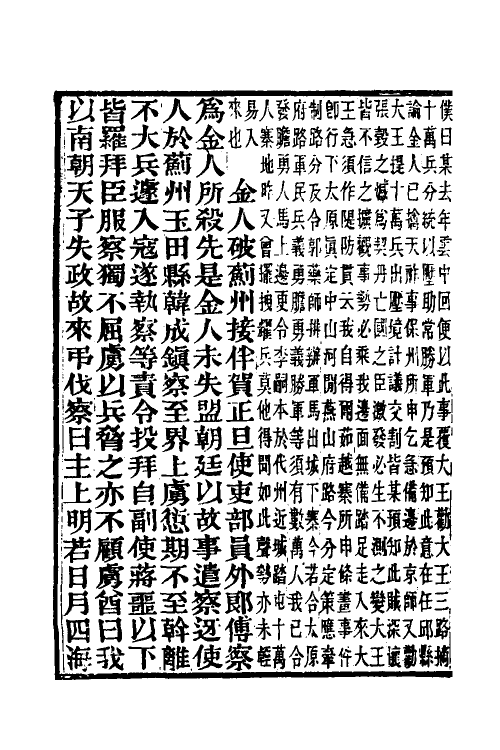 僕曰某去年雲中回便以此事覆大王勸大王三路摘
十萬兵分統以壓助常勝軍乃是預知此意在任邱縣
論金人已擒天祚事保州所申乞急備邊於京師又勸
大王提十萬兵出壓境計議交割皆某預知此賊深讓
張瑴之憾爲契丹亡國之臣激發必生不測之變大王
皆不信之擴觀事勢必乘我邊面無備踏足走入來大
王急須作隄防貫云我自得爾茹越寨所申條畫事件
卽行下太原眞定中山河閒燕山府路今分定策應牽
制路分及令郭藥師拼辦軍馬出城下寨今若合太原
府路軍民兵義勇膽勇義勝軍等須有數萬人我已合
發膽勇人馬上邊更令李嗣本於代州近城踏屯十萬
人寨地時又會擺拽兵莫他得閒如此聲勢亦未輕
易入
來也
金人破薊州接伴賀正旦使吏部員外郎傅察
爲金人所殺先是金人未失盟朝廷以故事遣察迓使
人於薊州玉田縣韓成鎮察至界上虜愆期不至斡離
不大兵遽入寇遂執察等責令投拜自副使蔣噩以下
皆羅拜臣服察獨不屈虜以兵脅之亦不顧虜酋曰我
以南朝天子失政故來弔伐察曰主上明若日月四海